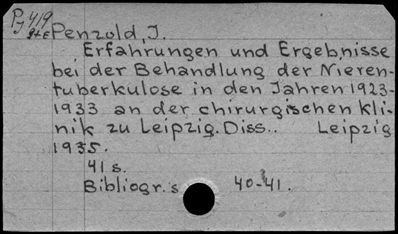 Pj 419
Penzold, J.
Erfahrungen und Ergebnisse
bei der Behandlung der Nieren-
tuberkulose in den Jahren 1923-
1933 an der chirurgischen Kli-
nik zu Leipzig. Diss.. Leipzig
1935.
41 s.
Bibliogr. s 40-41.